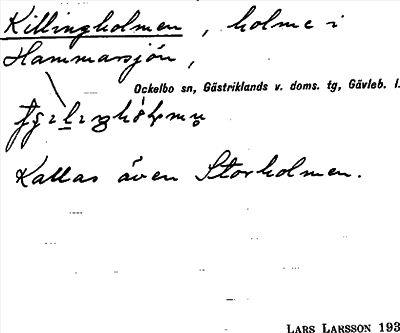 Killingholmen, holme i
Hammarsjön,
Ockelbo sn, Gästriklands v. doms. tg, Gävleb. l.
Kallas även Storholmen.
LARS LARSSON 193